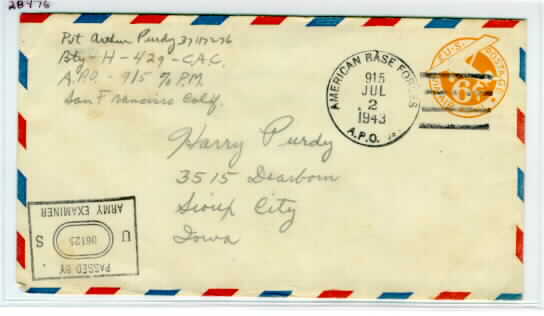 28476
Pvt Arthur Purdy
Bty - H - 429 - C.A.C.
A.P.O. - 915 % P.M.
San Francisco Calif.
AMERICAN BASE FORCES
915
JUL
2
1943
A.P.O.
U.S. POSTAGE
6¢
Harry Purdy
3515 Dearborn
Sioux City
Iowa
PASSED BY
U 06125 S
ARMY EXAMINER